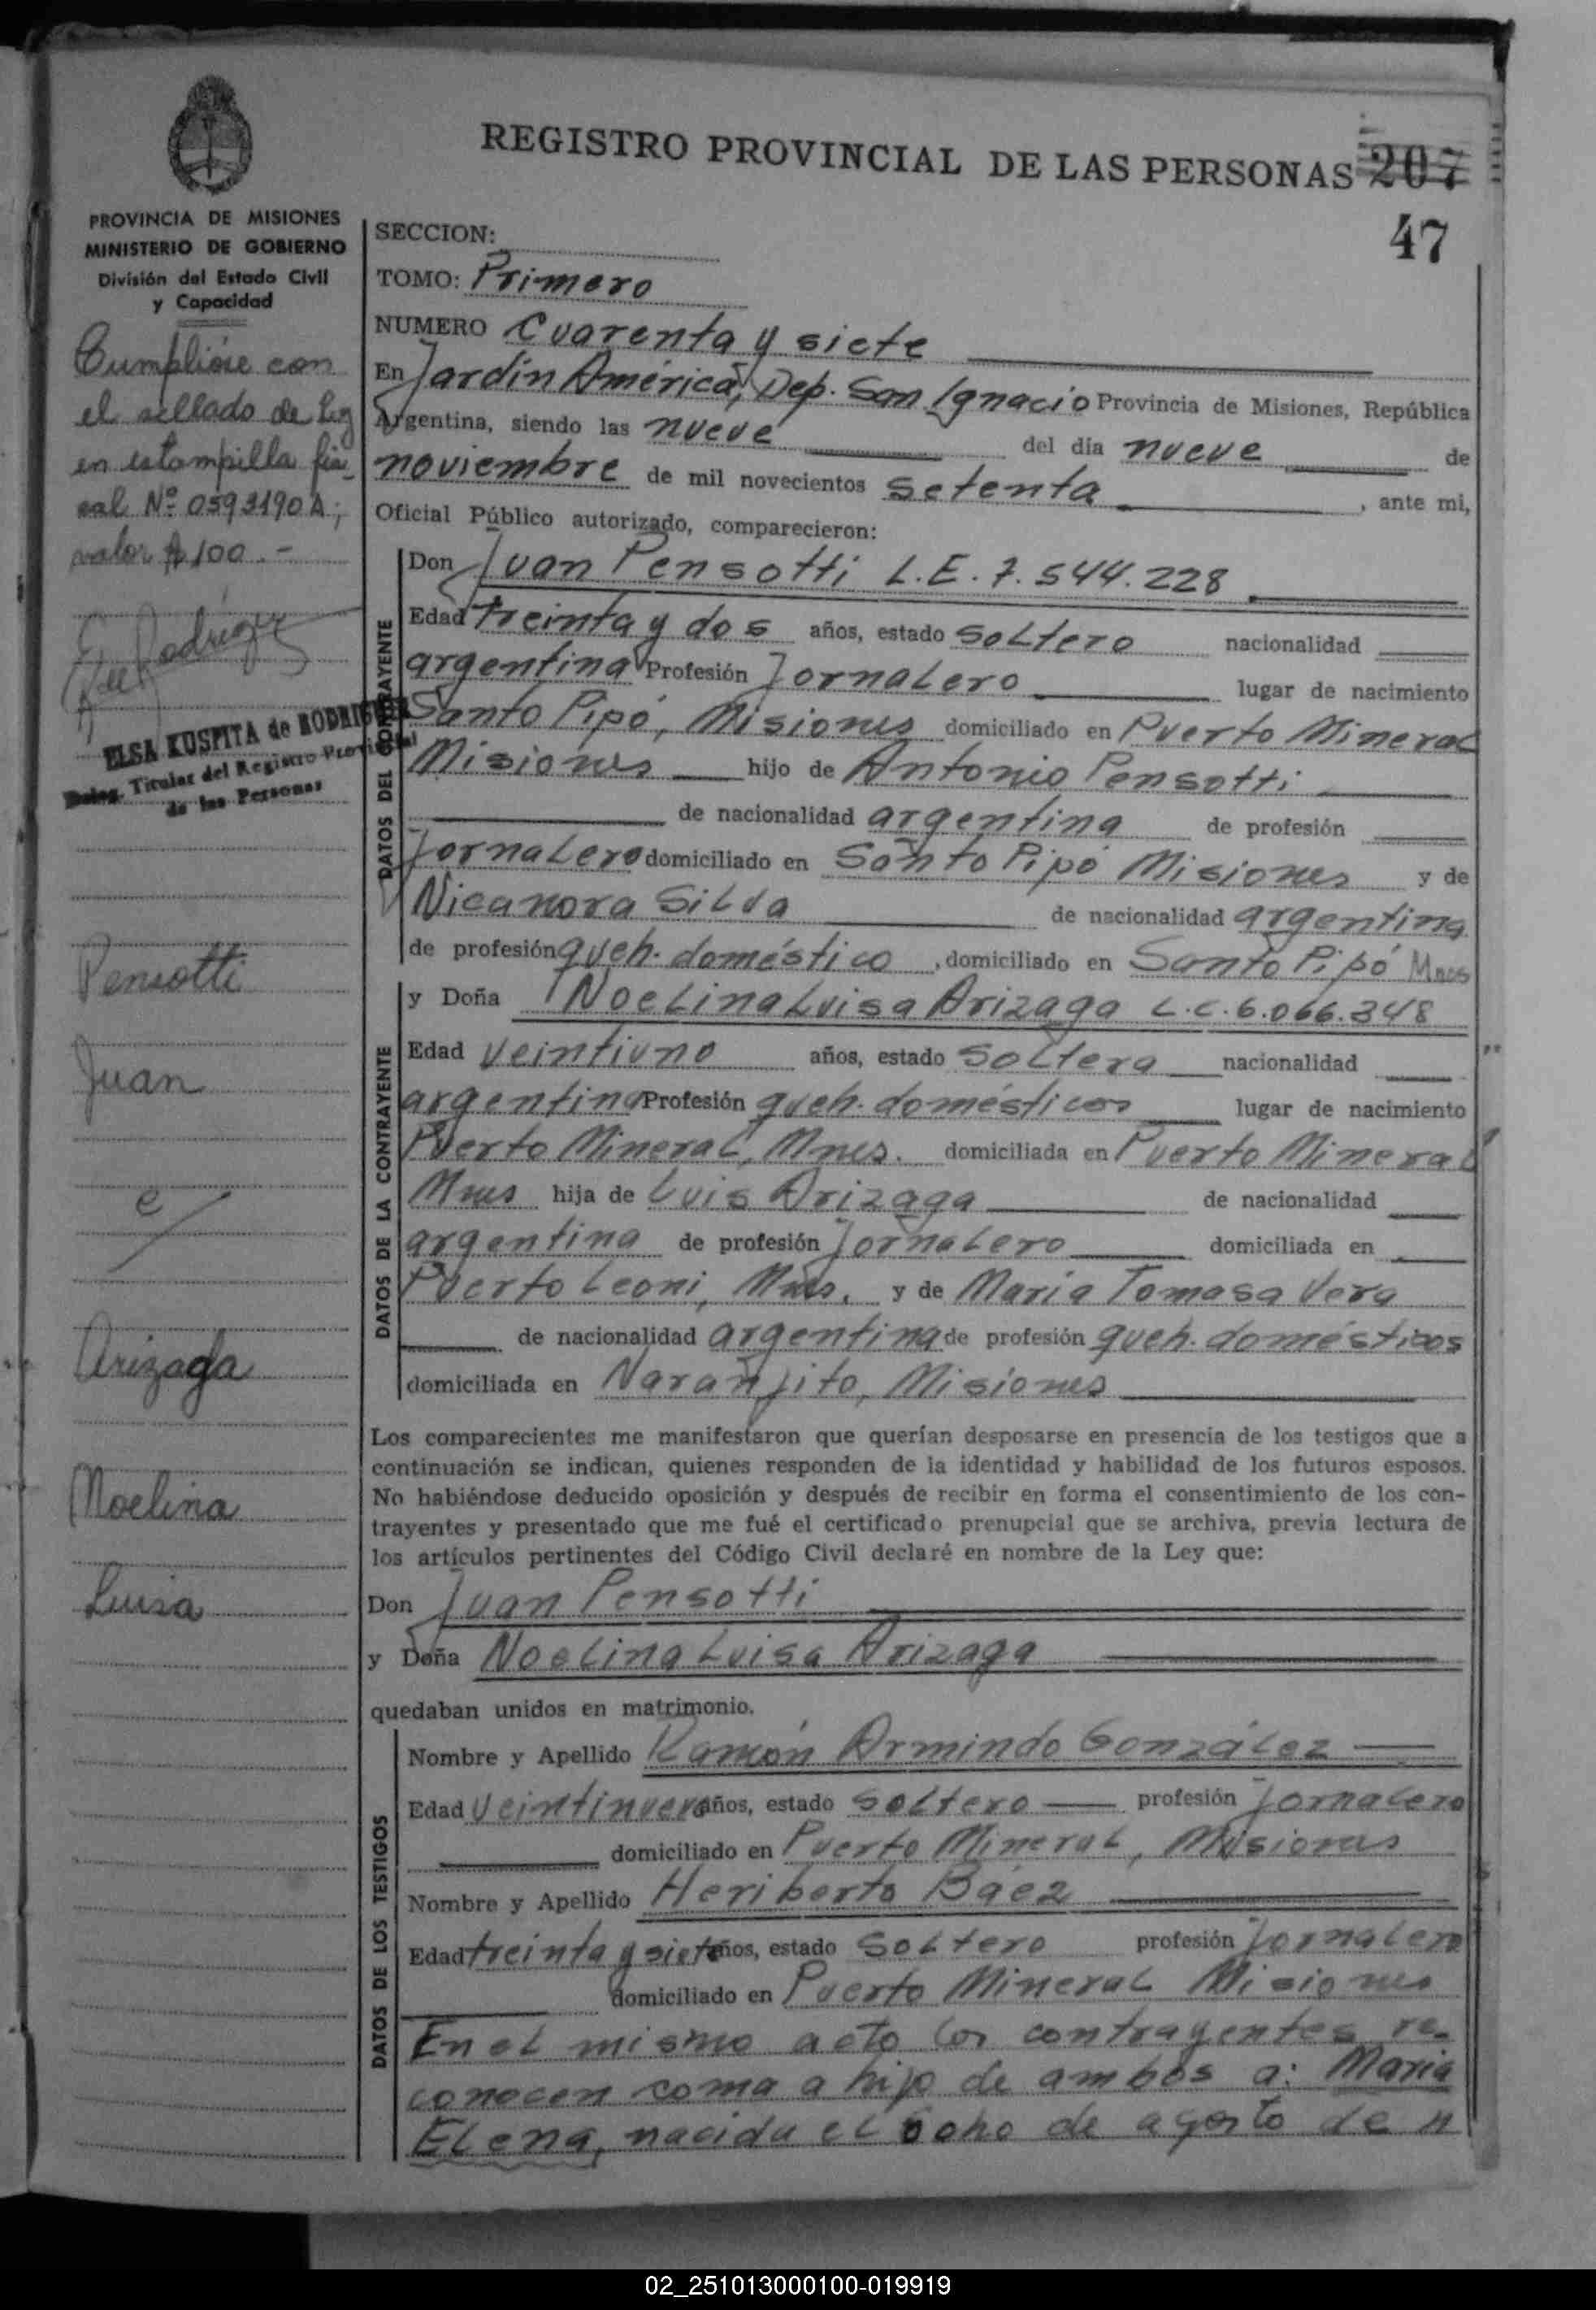 REGISTRO PROVINCIAL DE LAS PERSONAS 207
47
PROVINCIA DE MISIONES
MINISTERIO DE GOBIERNO
División del Estado Civil
y Capacidad
Cumplióse con
el sellado de Ley
en estampilla fis-
cal Nº 0593190 A;
valor $ 100.-
ELSA KUSPITA de RODRIGUEZ
Deleg. Titular del Registro Provincial
de las Personas
Pensotti
Juan
c/
Arizaga
Noelina
Luisa
SECCION:
TOMO: Primero
NUMERO Cuarenta y siete
En Jardín América, Dep. San Ignacio Provincia de Misiones, República
Argentina, siendo las nueve del día nueve de
noviembre de mil novecientos setenta, ante mi,
Oficial Público autorizado, comparecieron:
DATOS DEL CONTRAYENTE
Don Juan Pensotti L.E. 7.544.228
Edad treinta y dos años, estado soltero nacionalidad
argentina Profesión Jornalero lugar de nacimiento
Santo Pipó, Misiones domiciliado en Puerto Mineral
Misiones hijo de Antonio Pensotti
de nacionalidad argentina de profesión
Jornalero domiciliado en Santo Pipó Misiones y de
Nicanora Silva de nacionalidad argentina
de profesión queh. doméstico, domiciliado en Santo Pipó Mnes
DATOS DE LA CONTRAYENTE
y Doña Noelina Luisa Arizaga L.C. 6.066.348
Edad veintiuno años, estado soltera nacionalidad
argentina Profesión queh. domésticos lugar de nacimiento
Puerto Mineral, Mnes. domiciliada en Puerto Mineral
Mnes hija de Luis Arizaga de nacionalidad
argentina de profesión Jornalero domiciliada en
Puerto Leoni, Mnes. y de María Tomasa Vera
de nacionalidad argentina de profesión queh. domésticos
domiciliada en Naranjito, Misiones
Los comparecientes me manifestaron que querían desposarse en presencia de los testigos que a
continuación se indican, quienes responden de la identidad y habilidad de los futuros esposos.
No habiéndose deducido oposición y después de recibir en forma el consentimiento de los con-
trayentes y presentado que me fué el certificado prenupcial que se archiva, previa lectura de
los artículos pertinentes del Código Civil declaré en nombre de la Ley que:
Don Juan Pensotti
y Doña Noelina Luisa Arizaga
quedaban unidos en matrimonio.
DATOS DE LOS TESTIGOS
Nombre y Apellido Ramón Armindo González
Edad veintinueve años, estado soltero profesión Jornalero
domiciliado en Puerto Mineral, Misiones
Nombre y Apellido Heriberto Báez
Edad treinta y siete años, estado soltero profesión Jornalero
domiciliado en Puerto Mineral Misiones
En el mismo acto los contrayentes re-
conocen como a hijo de ambos a: María
Elena, nacida el ocho de agosto de
02_251013000100-019919